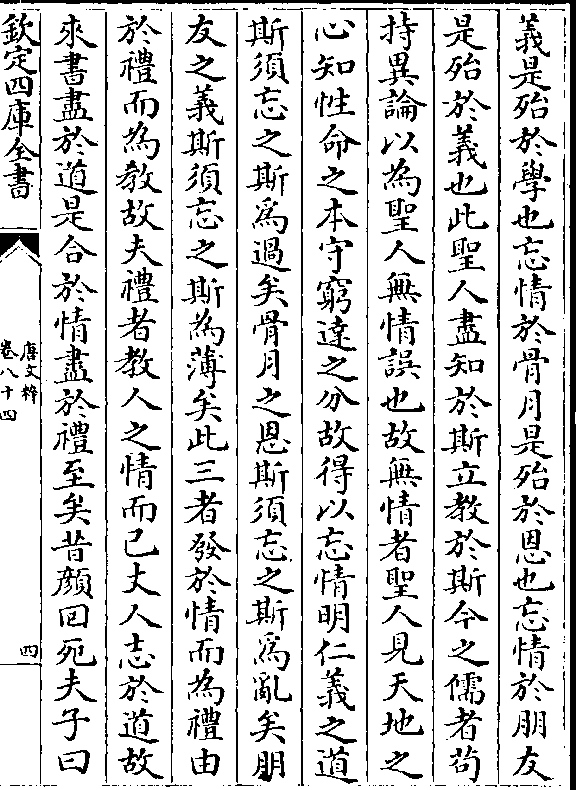 義是殆於學也忘情於骨月是殆於恩也忘情於朋友
是殆於義也此聖人盡知於斯立教於斯今之儒者茍
持異論以為聖人無情誤也故無情者聖人見天地之
心知性命之本守窮達之分故得以忘情明仁義之道
斯須忘之斯為過矣骨月之恩斯須忘之斯為亂矣朋
友之義斯須忘之斯為薄矣此三者發於情而為禮由
於禮而為教故夫禮者教人之情而已丈人志於道故
來書盡於道是合於情盡於禮至矣昔顔回死夫子曰
欽定四庫全書
唐文粹
卷八十四
四